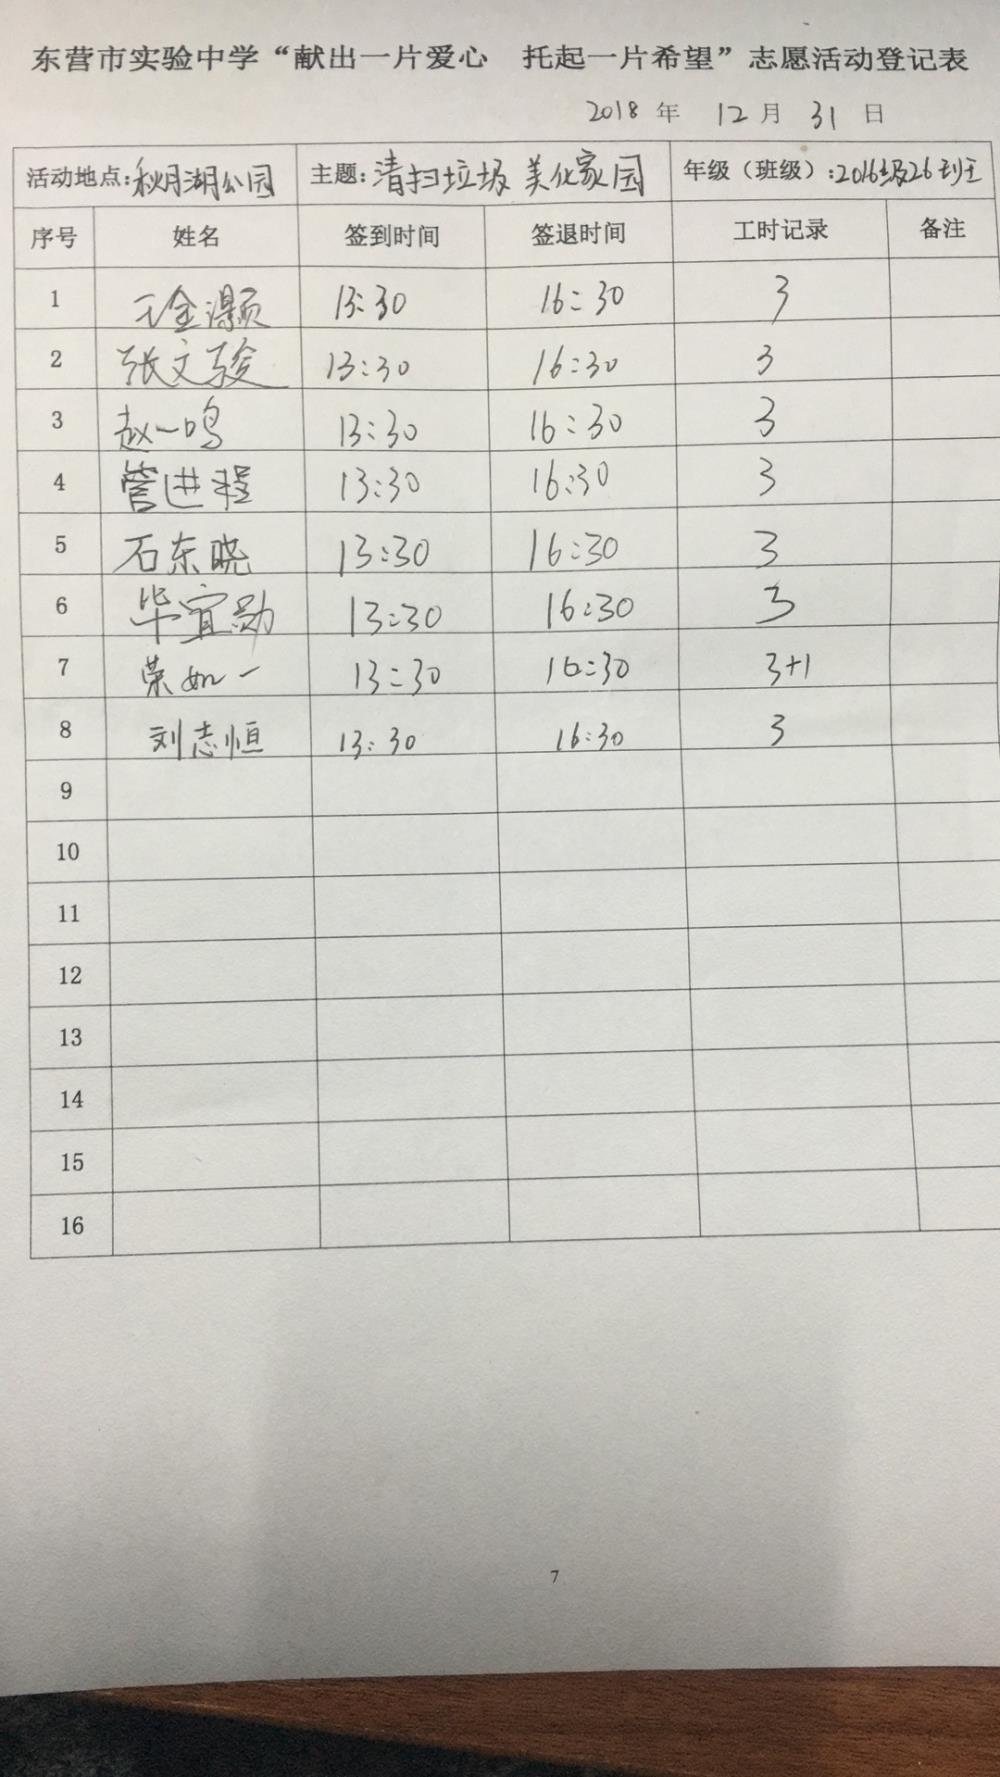 东营市实验中学“献出一片爱心 托起一片希望”志愿活动登记表
2018 年 12 月 31 日
活动地点:秋月湖公园 主题:清扫垃圾 美化家园 年级（班级）:2016级26班
序号 姓名 签到时间 签退时间 工时记录 备注
1 13:30 16:30 3
2 张文骏 13:30 16:30 3
3 赵一鸣 13:30 16:30 3
4 管进程 13:30 16:30 3
5 石东晓 13:30 16:30 3
6 毕宜勋 13:30 16:30 3
7 荣如一 13:30 16:30 3+1
8 刘志恒 13:30 16:30 3
9
10
11
12
13
14
15
16
7